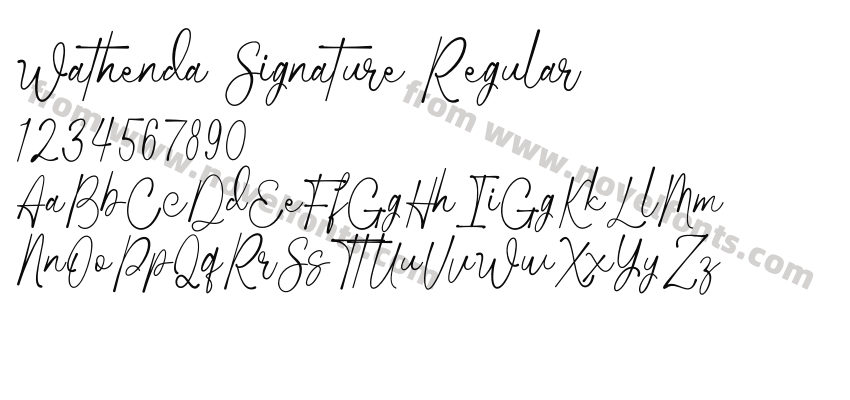 Wathenda Signature Regular
1234567890
AaBbCcDdEeFfGgHhIiGgKkLlMm
NnOoPpQqRrSsTtUuVvWwXxYyZz
from www.novelfonts.com
from www.novelfonts.com